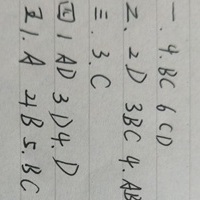 一. 4. BC 6 CD
二. 2D 3BC 4. AB
三. 3. C
四 1 AD 3 D 4. D
五 1. A 4B 5. BC